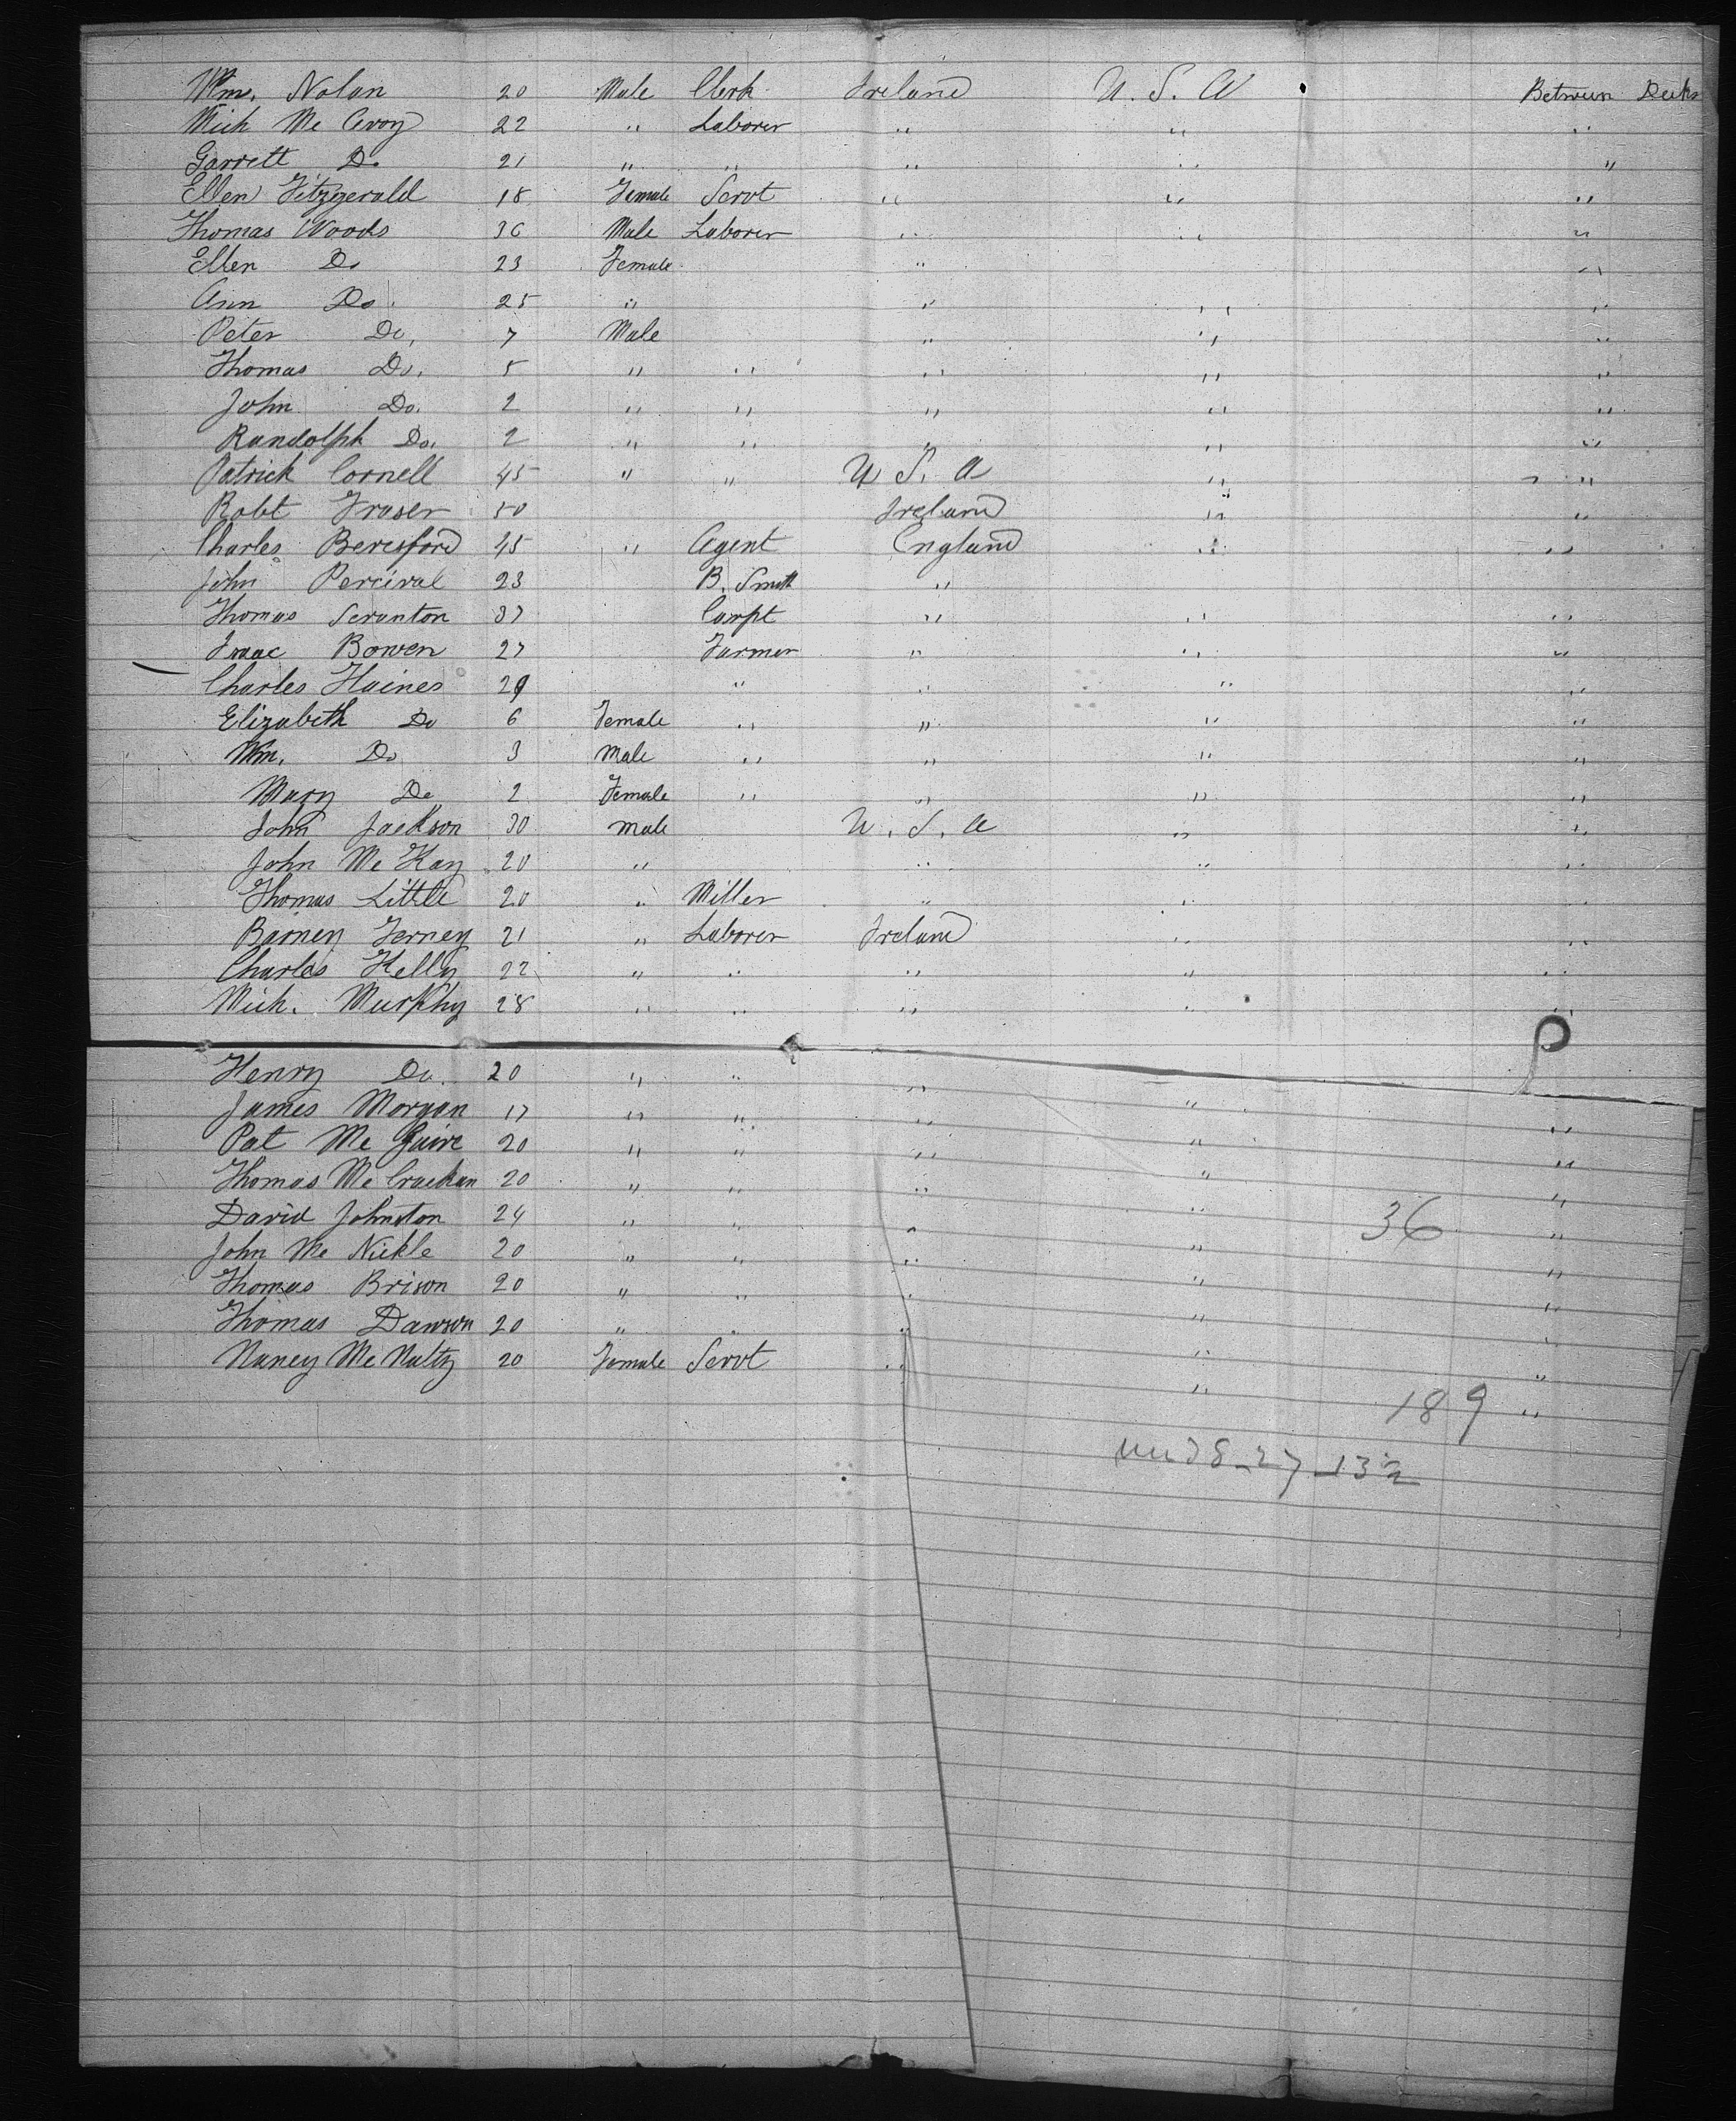 Wm. Nolan 20 Male Clerk Ireland U. S. A Between Decks
Mich Mc Avoy 22 " Laborer " " "
Garrett Do 21 " " " " "
Ellen Fitzgerald 18 Female Servt " " "
Thomas Woods 36 Male Laborer " " "
Ellen Do 23 Female " "
Ann Do. 25 " " " "
Peter Do. 7 Male " " "
Thomas Do. 5 " " " " "
John Do. 2 " " " " "
Randolph Do. 2 " " " " "
Patrick Cornell 45 " " U S. A " "
Robt Fraser 50 Ireland " "
Charles Beresford 45 " Agent England " "
John Percival 23 B. Smith "
Thomas Scranton 37 Carpt " " "
Isaac Bowen 27 Farmer " " "
Charles Haines 29 " " " "
Elizabeth Do 6 Female " " " "
Wm. Do 3 Male " " " "
Mary Do 2 Female " " " "
John Jackson 30 Male U. S. A " "
John Mc Kay 20 " " " "
Thomas Little 20 " Miller " " "
Barney Ferney 21 " Laborer Ireland " "
Charles Kelly 22 " " " " "
Mich. Murphy 28 " " " " "
Henry Do. 20 " " " " "
James Morgan 17 " " " " "
Pat Mc Guire 20 " " " " "
Thomas Mc Crackan 20 " " " " "
David Johnston 24 " " " " "
John Mc Nickle 20 " " " " "
Thomas Brison 20 " " " " "
Thomas Dawson 20 " " " " "
Nancy Mc Nulty 20 Female Servt " " "
36
189